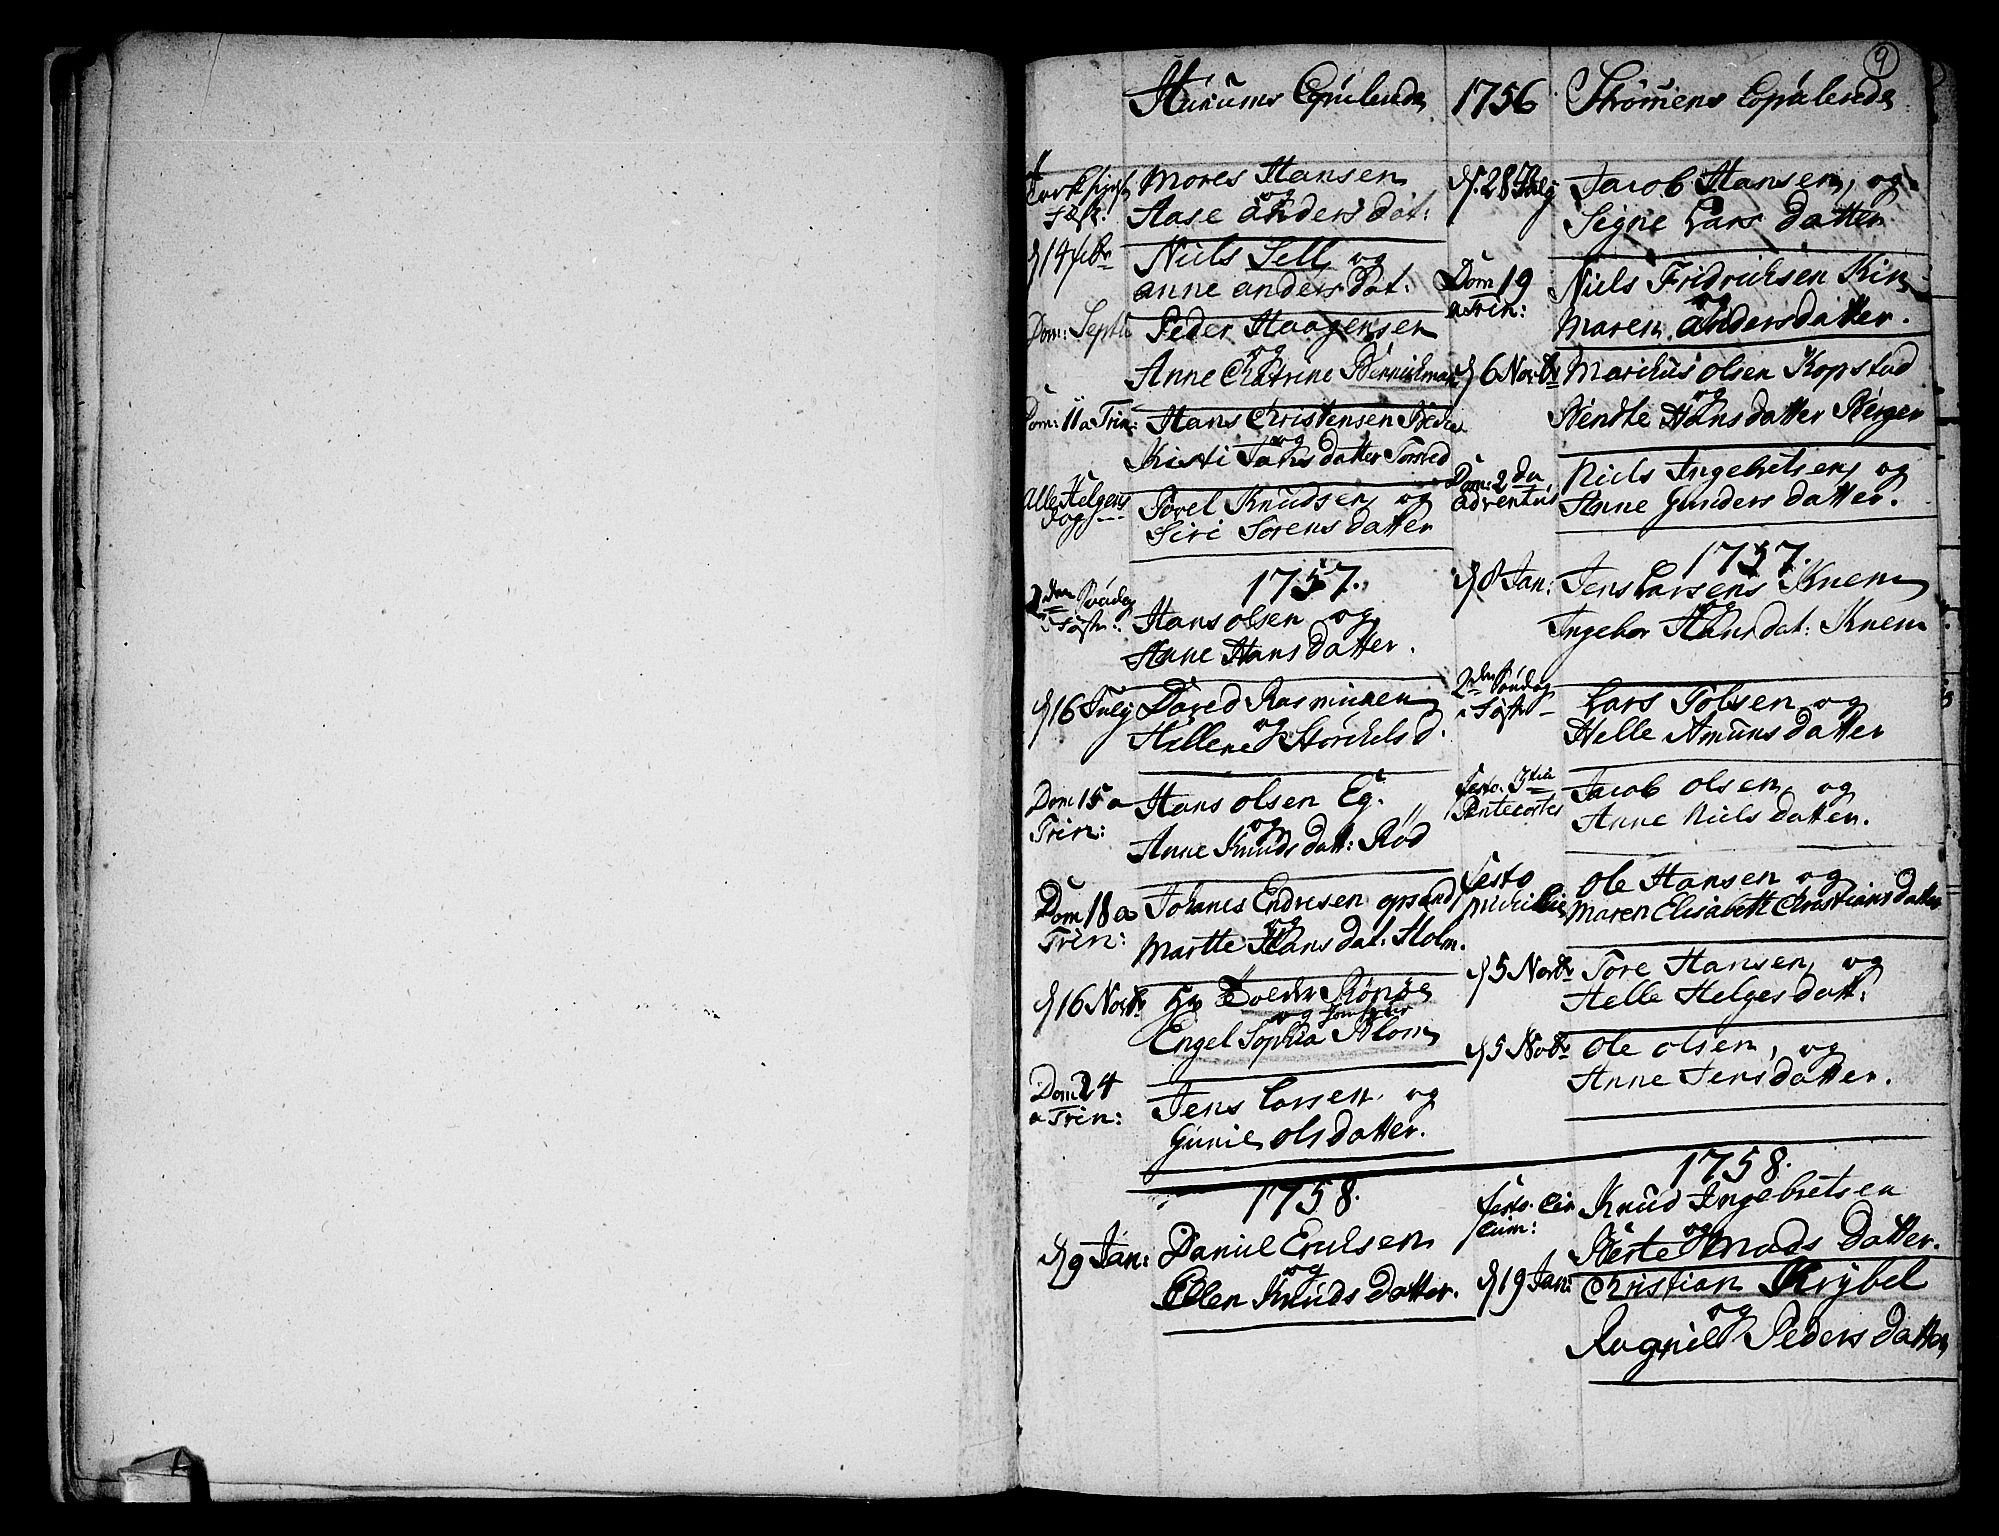 9
Hurums Copulerede
1756
Strømens Copulerede
Mores Hansen
og
Aase anders dat:
d 14 febr
Niels Sell og
anne anders dat:
Dom: Septu
Peder Haagensen
og
Anne Chatrine
Dom: 11 a Trin:
Hans Christensen
og
Kisti Jans datter Tomred
Alle Helgens
dag
Povel Knudsen og
Siri Sørens datter
1757.
2den Søndag
i Faste:
Hans olsen og
Anne Hans datter.
d 16 July
David Rasmusen
og
Hellene Størchels d.
Dom 15 a
Trin:
Hans olsen Eg.
og
Anne Knuds datt: Rød
Dom 18 a
Trin:
Johanes Endresen opsand
og
Marthe Hans dat: Holm.
d 16 Novbr
Hr
og Jomfrue
Engel Sophia Blom
Dom 24
a Trin:
Jens Larsen og
Gunil ols datter.
1758.
d 9 Jan:
Daniel Erichsen
og
Ellen Knuds datter.
d. 28 July
Jacob Hansen, og
Signe Lars datter
Dom 19
a Trin:
Niels Fridrichsen Kin
og
Maren anders datter.
d 6 Novbr
Marchus olsen Kopstad
og
Bendte Hans datter Berger
Dom: 2da
adventus
Niels Ingebretsen og
Anne Gunders datter.
1757.
d 8 Jan:
Jens Larsen Knem
og
Ingebor Hans dat: Knem
2den Søndag
i Faste
Lars Tolsen og
Helle Amuns datter
Festo 3tia
Pentecostes
Jacob olsen, og
Anne Niels datter.
Festo
Michaelis
Ole Hansen og
Maren Elisabeth Christians datter
d 5 Novbr
Tore Hansen, og
Helle Helges datt:
d 5 Novbr
Ole olsen, og
Anne Jens datter.
1758.
Festo Cir
cum:
Knud Ingebretsen
og
Berte Mads datter.
d 19 Jan:
Christian Krybel
og
Ragnil Peders datter